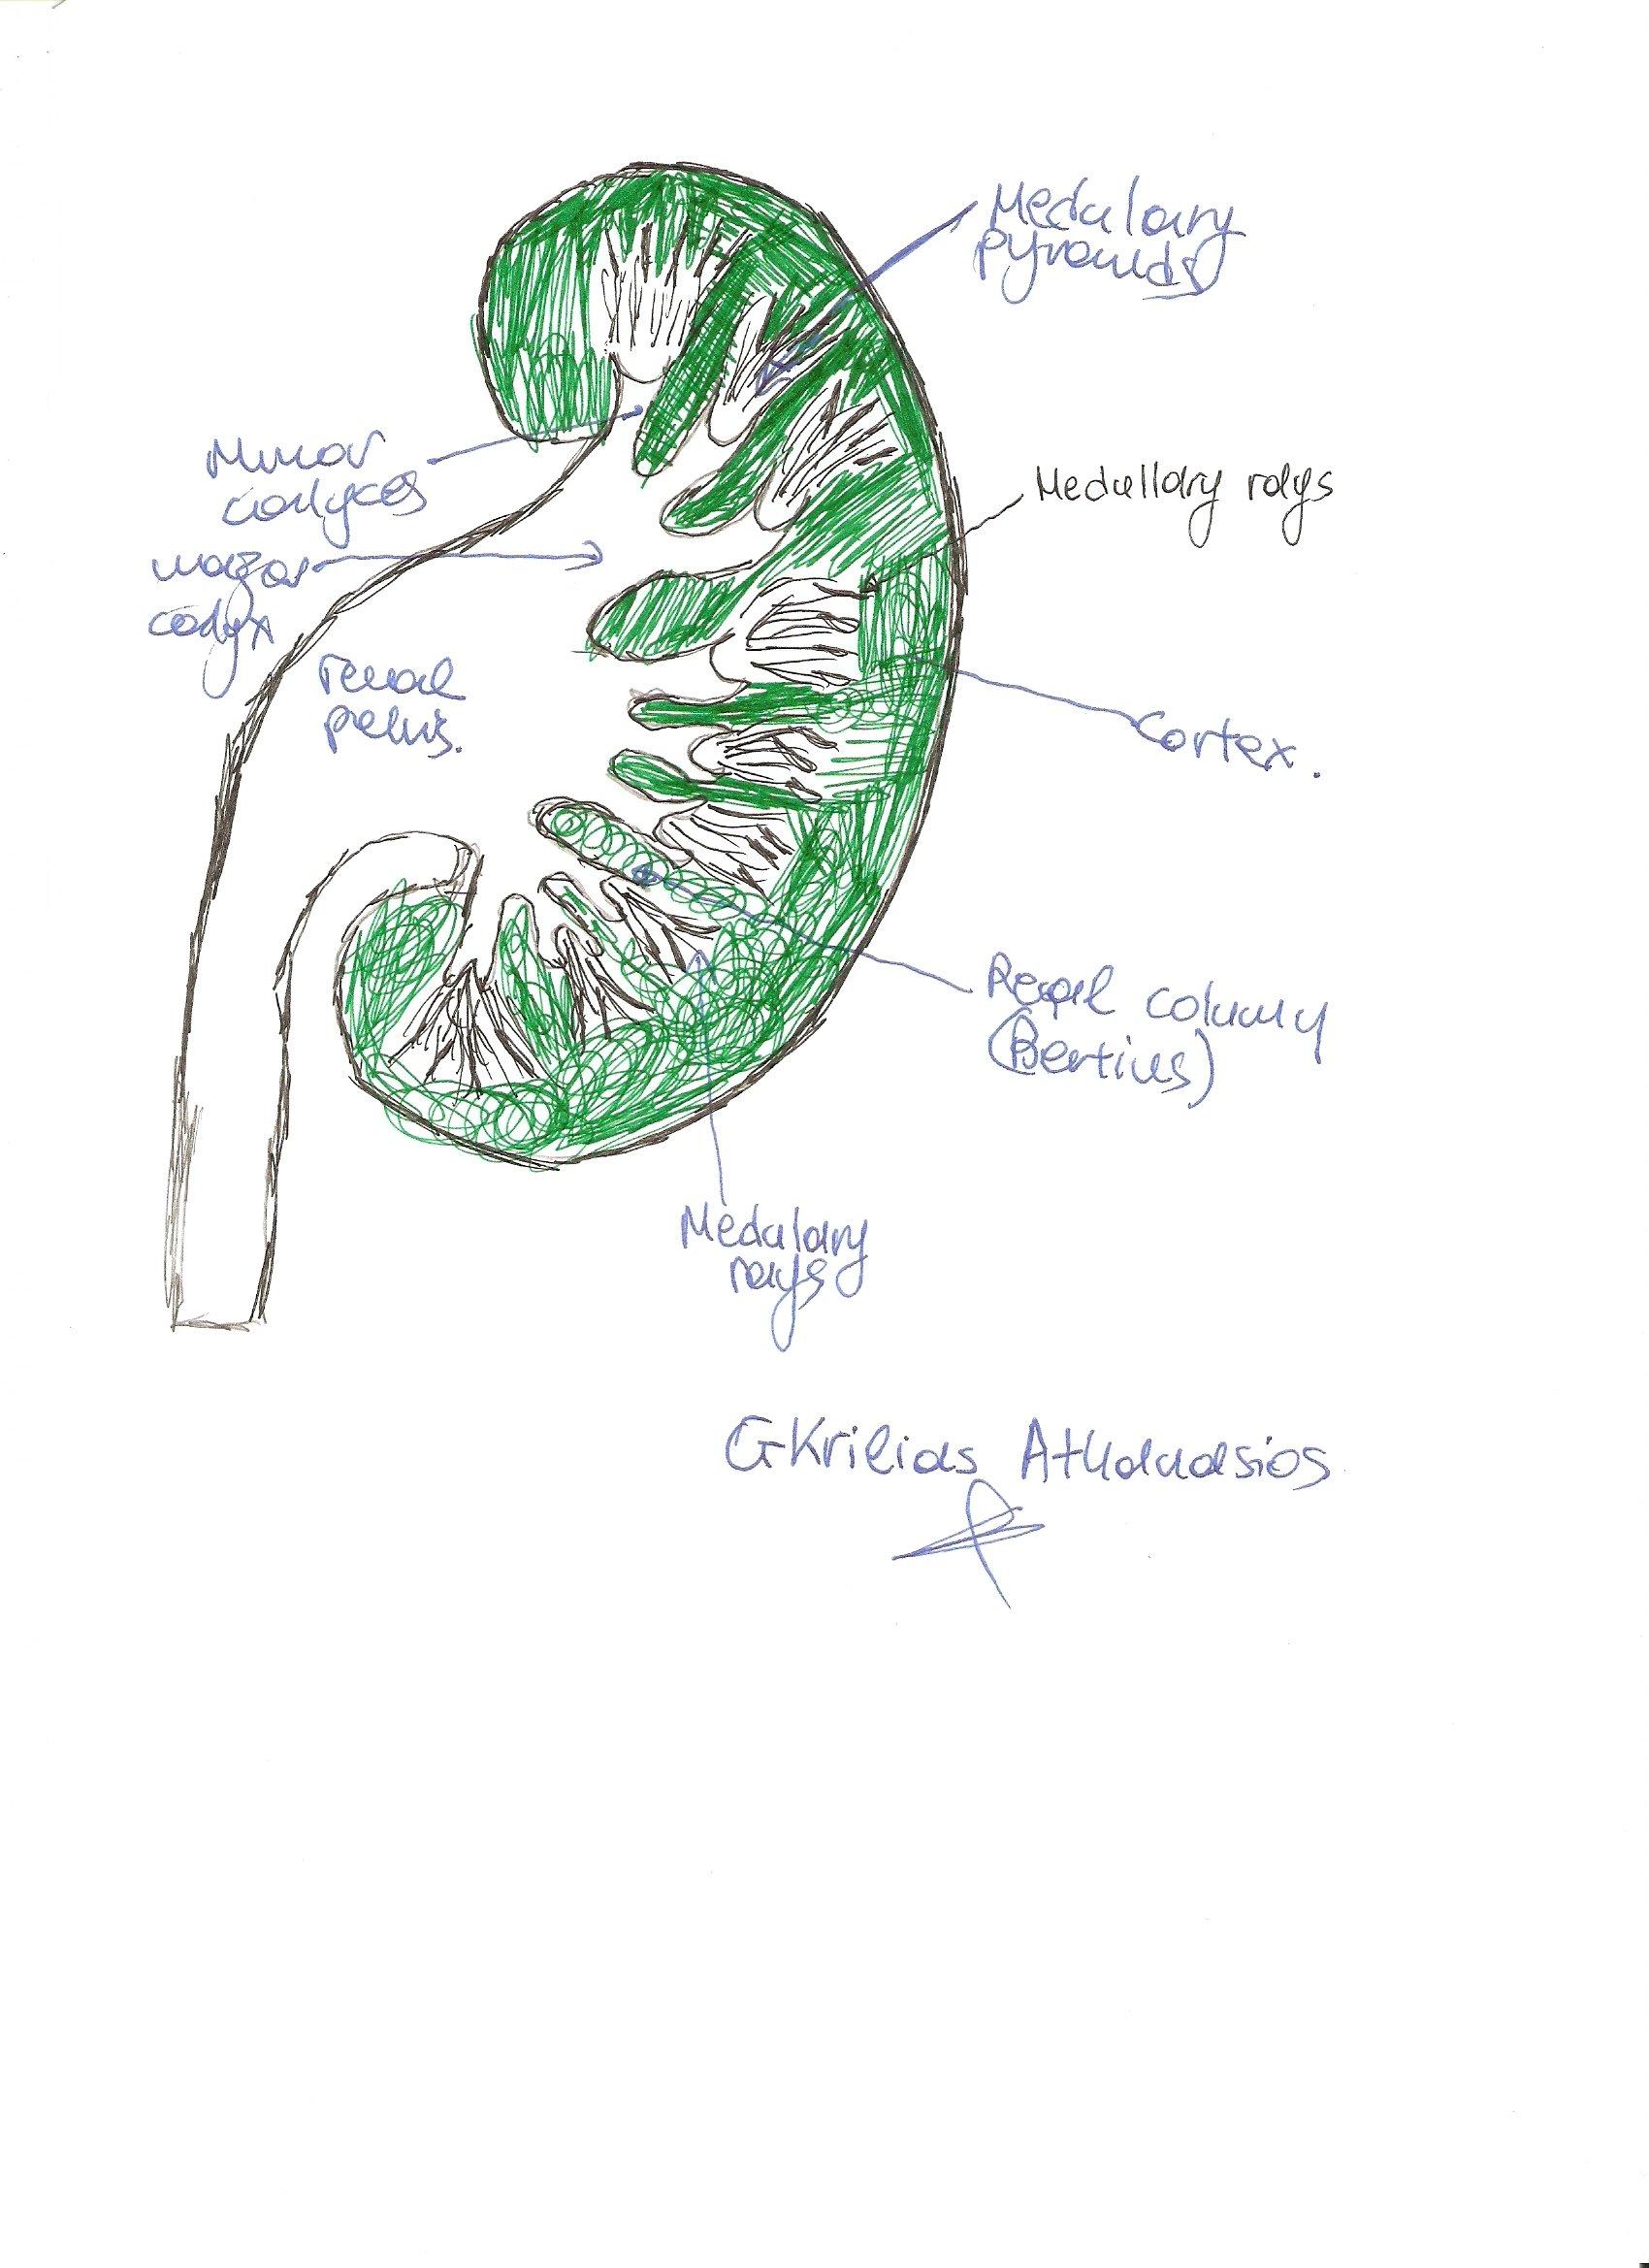 Medulary
pyramids
Minor
calyces
Medullary rays
major
calyx
renal
pelvis.
Cortex.
Renal column
(Bertius)
Medulary
rays
GKrilias Athanasios